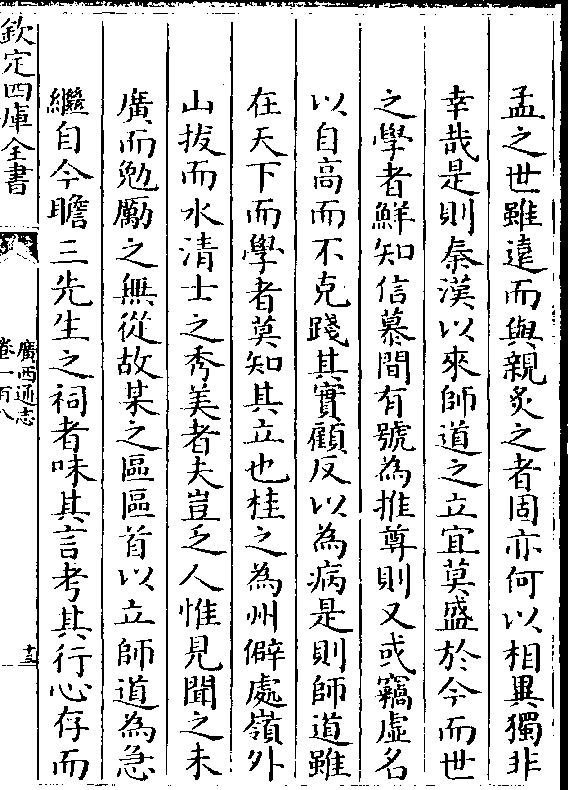 孟之世雖遠而與親炙之者固亦何以相異獨非
幸哉是則秦漢以來師道之立宜莫盛於今而世
之學者鮮知信慕間有號為推尊則又或竊虛名
以自高而不克踐其實顧反以為病是則師道雖
在天下而學者莫知其立也桂之為州僻處嶺外
山拔而水清士之秀美者夫豈乏人惟見聞之未
廣而勉勵之無從故某之區區首以立師道為急
繼自今瞻三先生之祠者味其言考其行心存而
欽定四庫全書
廣西通志
卷一百八
十三